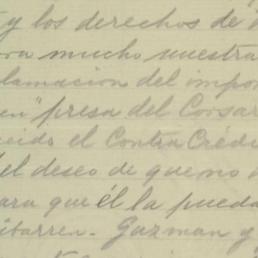 y los derechos de
mucho nuestra
clamacion del impor
en "presa del Corsar
cido el Contra Créde
del deseo de que no
ara que él la pueda
ibarren. Guzman y